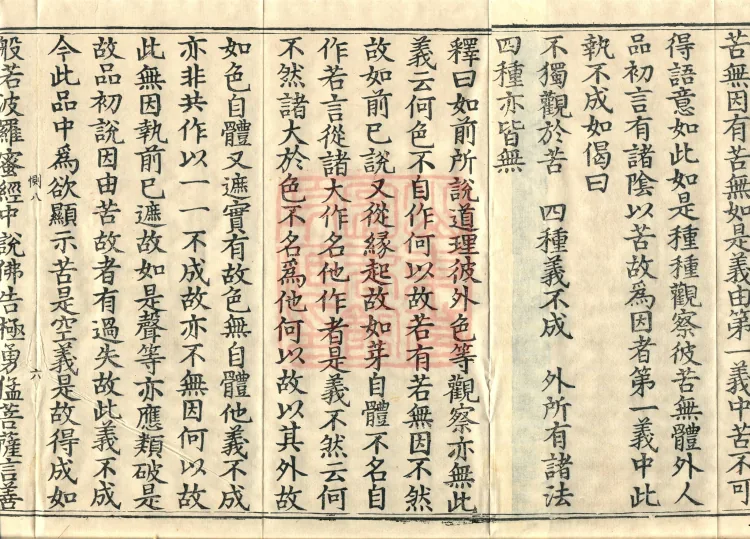 苦無因有苦無如是義由第一義中苦不可
得語意如此如是種種觀察彼苦無體外人
品初言有諸陰以苦故爲因者第一義中此
執不成如偈曰
不獨觀於苦　四種義不成　外所有諸法
四種亦皆無
釋曰如前所說道理彼外色等觀察亦無此
義云何色不自作何以故若有若無因不然
故如前已說又從緣起故如芽自體不名自
作若言從諸大作名他作者是義不然云何
不然諸大於色不名爲他何以故以其外故
如色自體又遮實有故色無自體他義不成
亦非共作以一一不成故亦不無因何以故
此無因執前已遮故如是聲等亦應類破是
故品初說因由苦故者有過失故此義不成
今此品中爲欲顯示苦是空義是故得成如
惻八　六
般若波羅蜜經中說佛告極勇猛菩薩言善